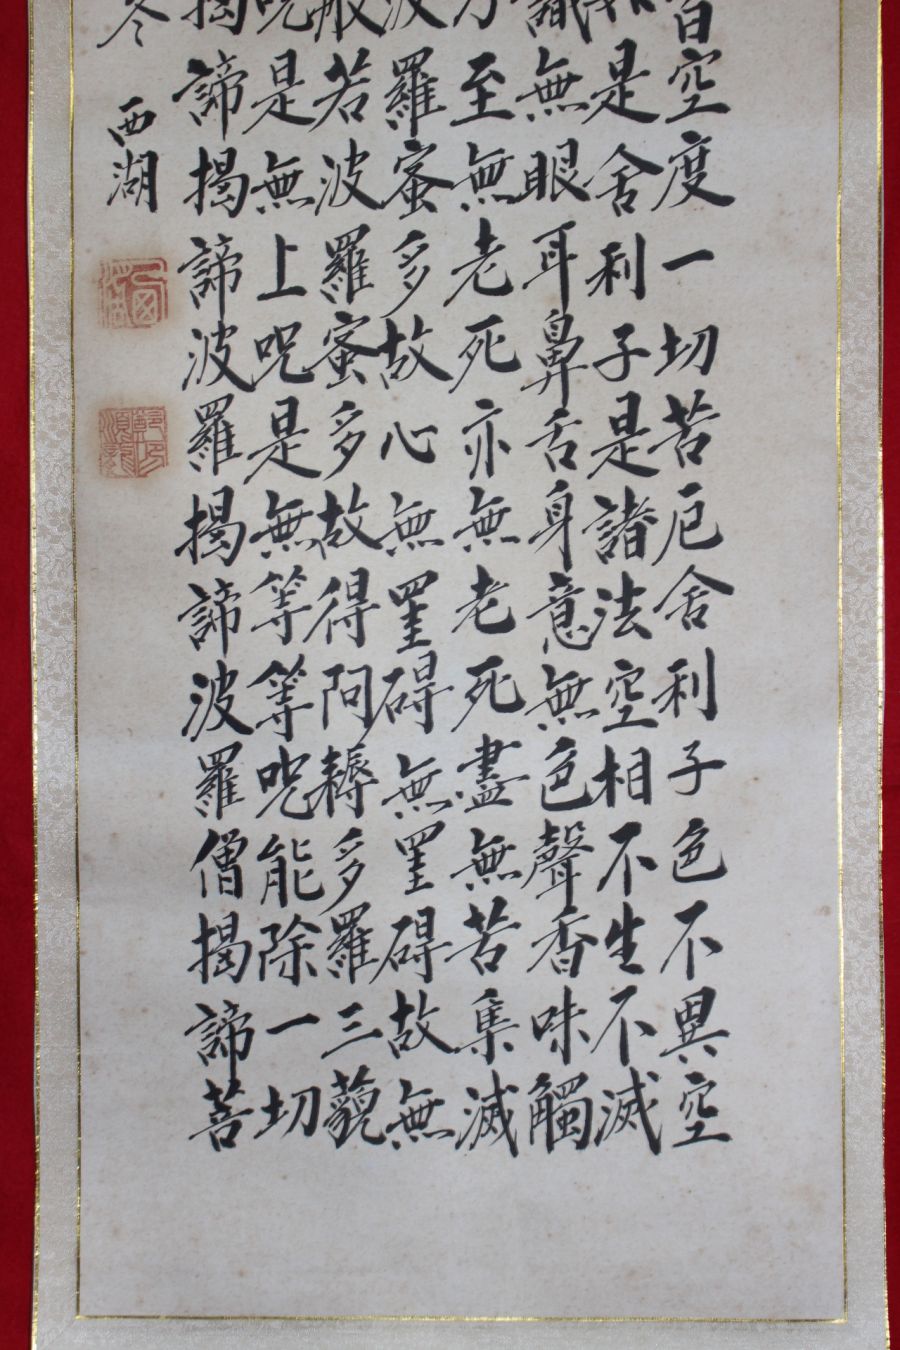 皆空度一切苦厄舍利子色不異空
如是舍利子是諸法空相不生不滅
識無眼耳鼻舌身意無色聲香味觸
乃至無老死亦無老死盡無苦集滅
波羅蜜多故心無罣碍無罣碍故無
般若波羅蜜多故得阿耨多羅三藐
咒是無上咒是無等等咒能除一切
揭諦揭諦波羅揭諦波羅僧揭諦菩
冬 西湖